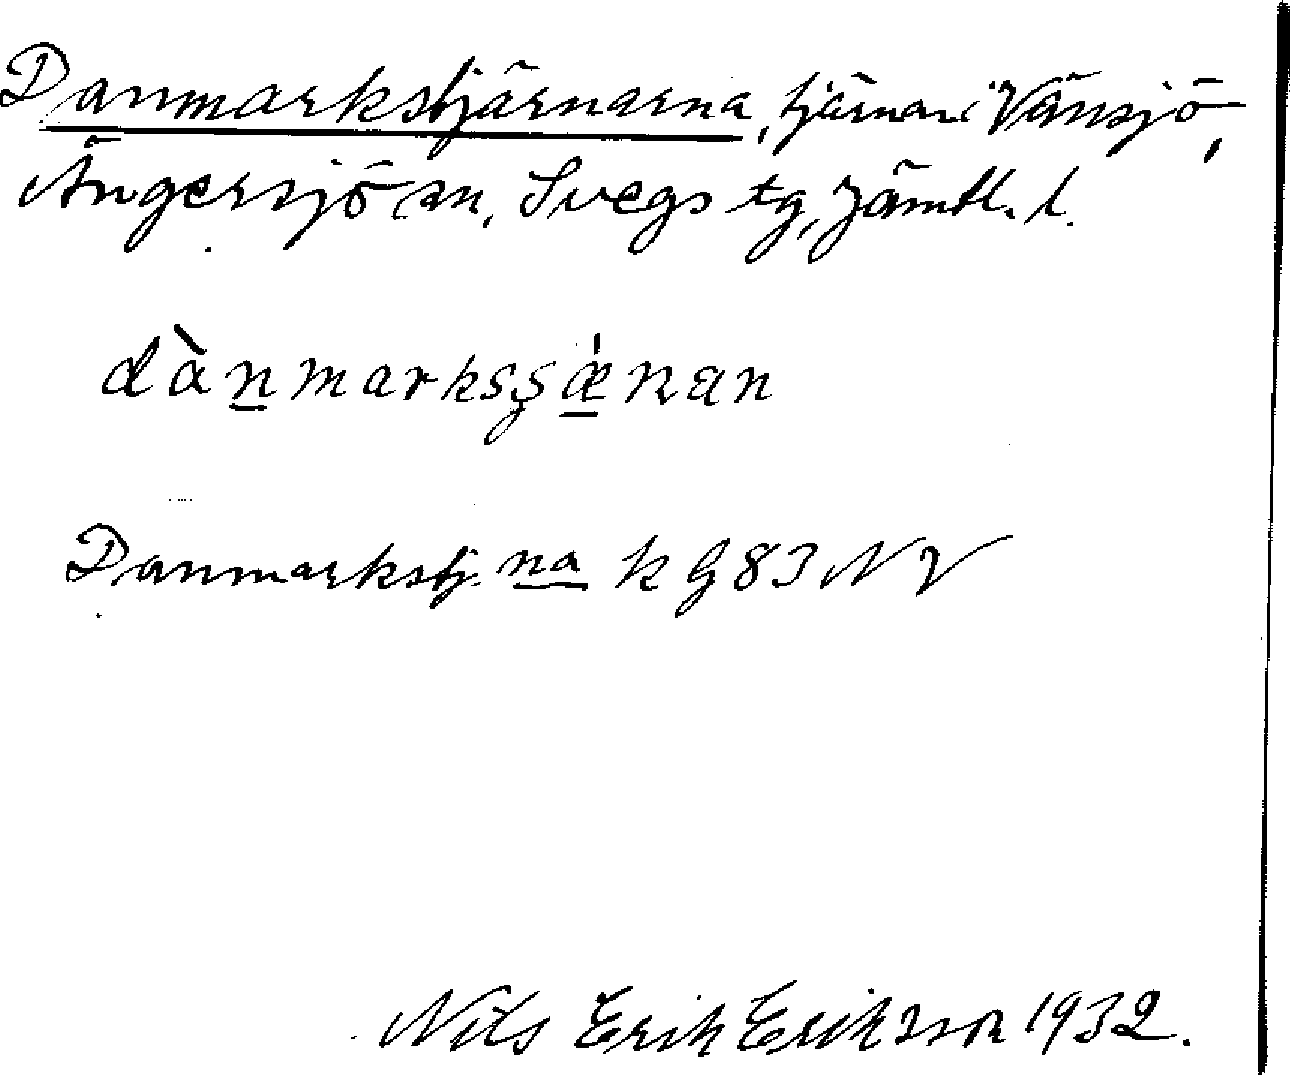 Danmarkstjärnarna, tjärnar i Vänsjö,
Ängersjö sn, Svegs tg, Jämtl. l.
dànmarksʂǽnan
Danmarkstj.na k G 83 NV
Nils Erik Eriksson 1932.